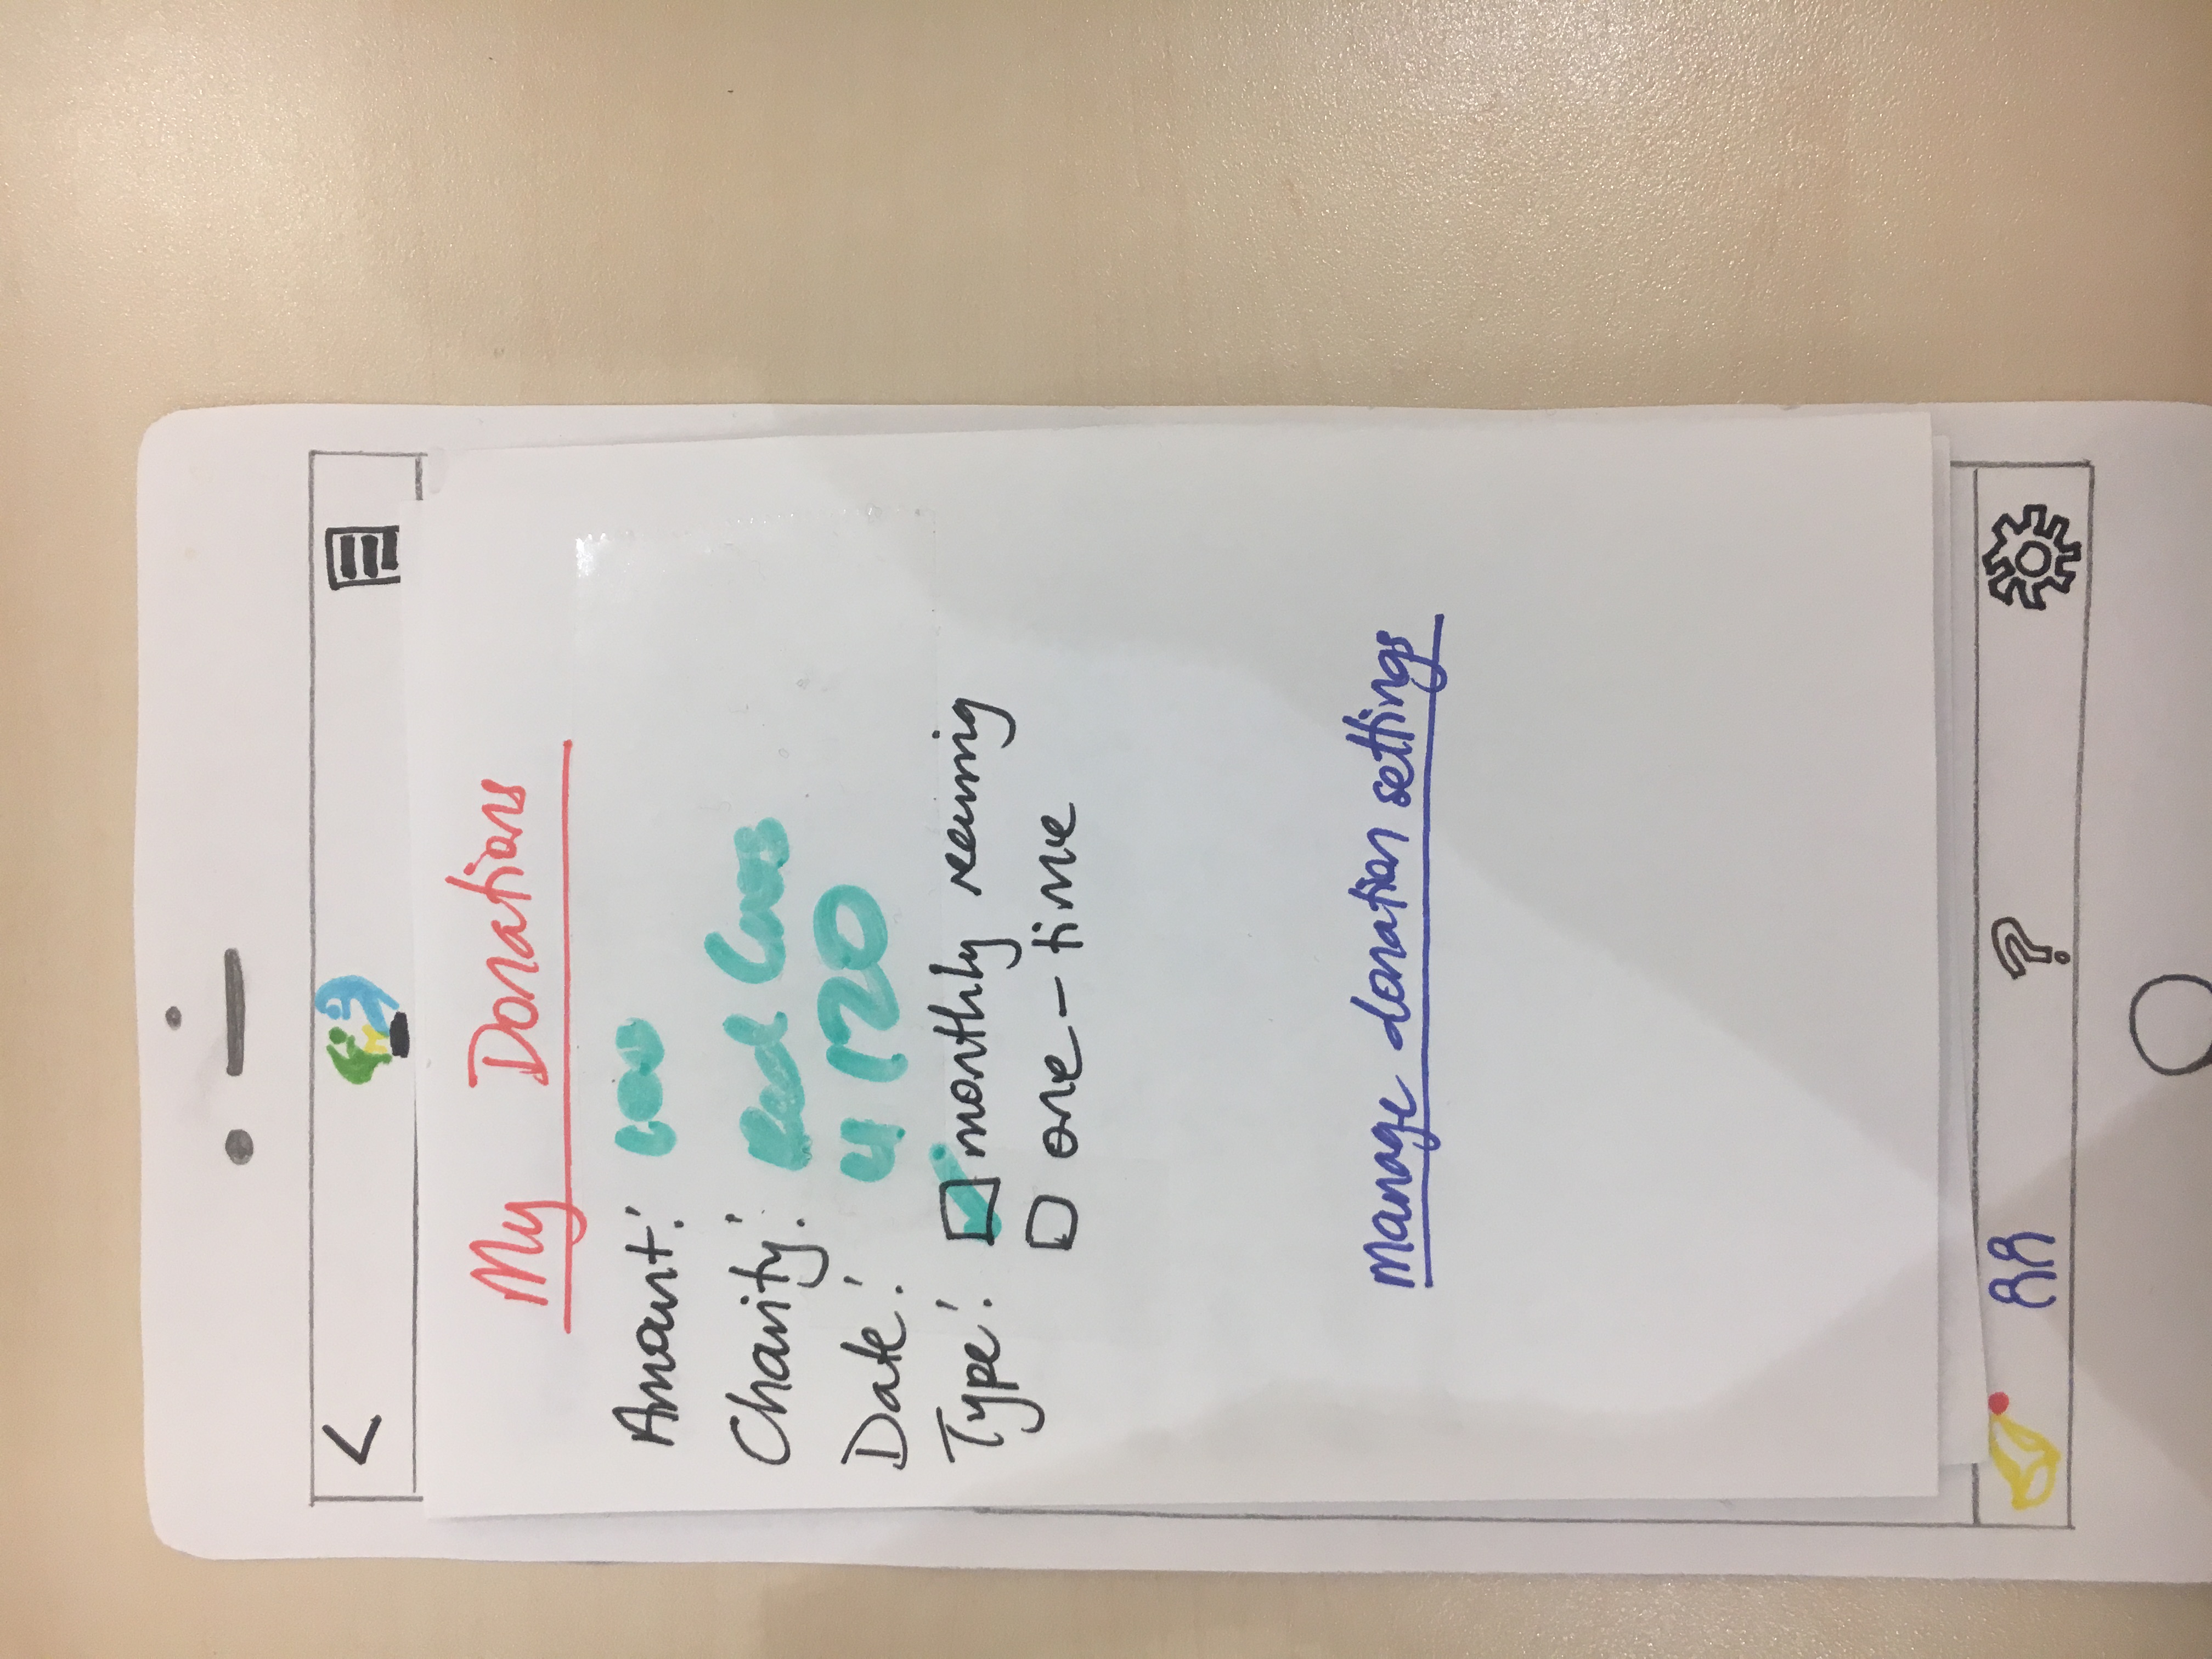 <
My Donations
Amount: 100
Charity: Red Cross
Date: 4/20
Type: monthly recurring
one-time
manage donation settings
?